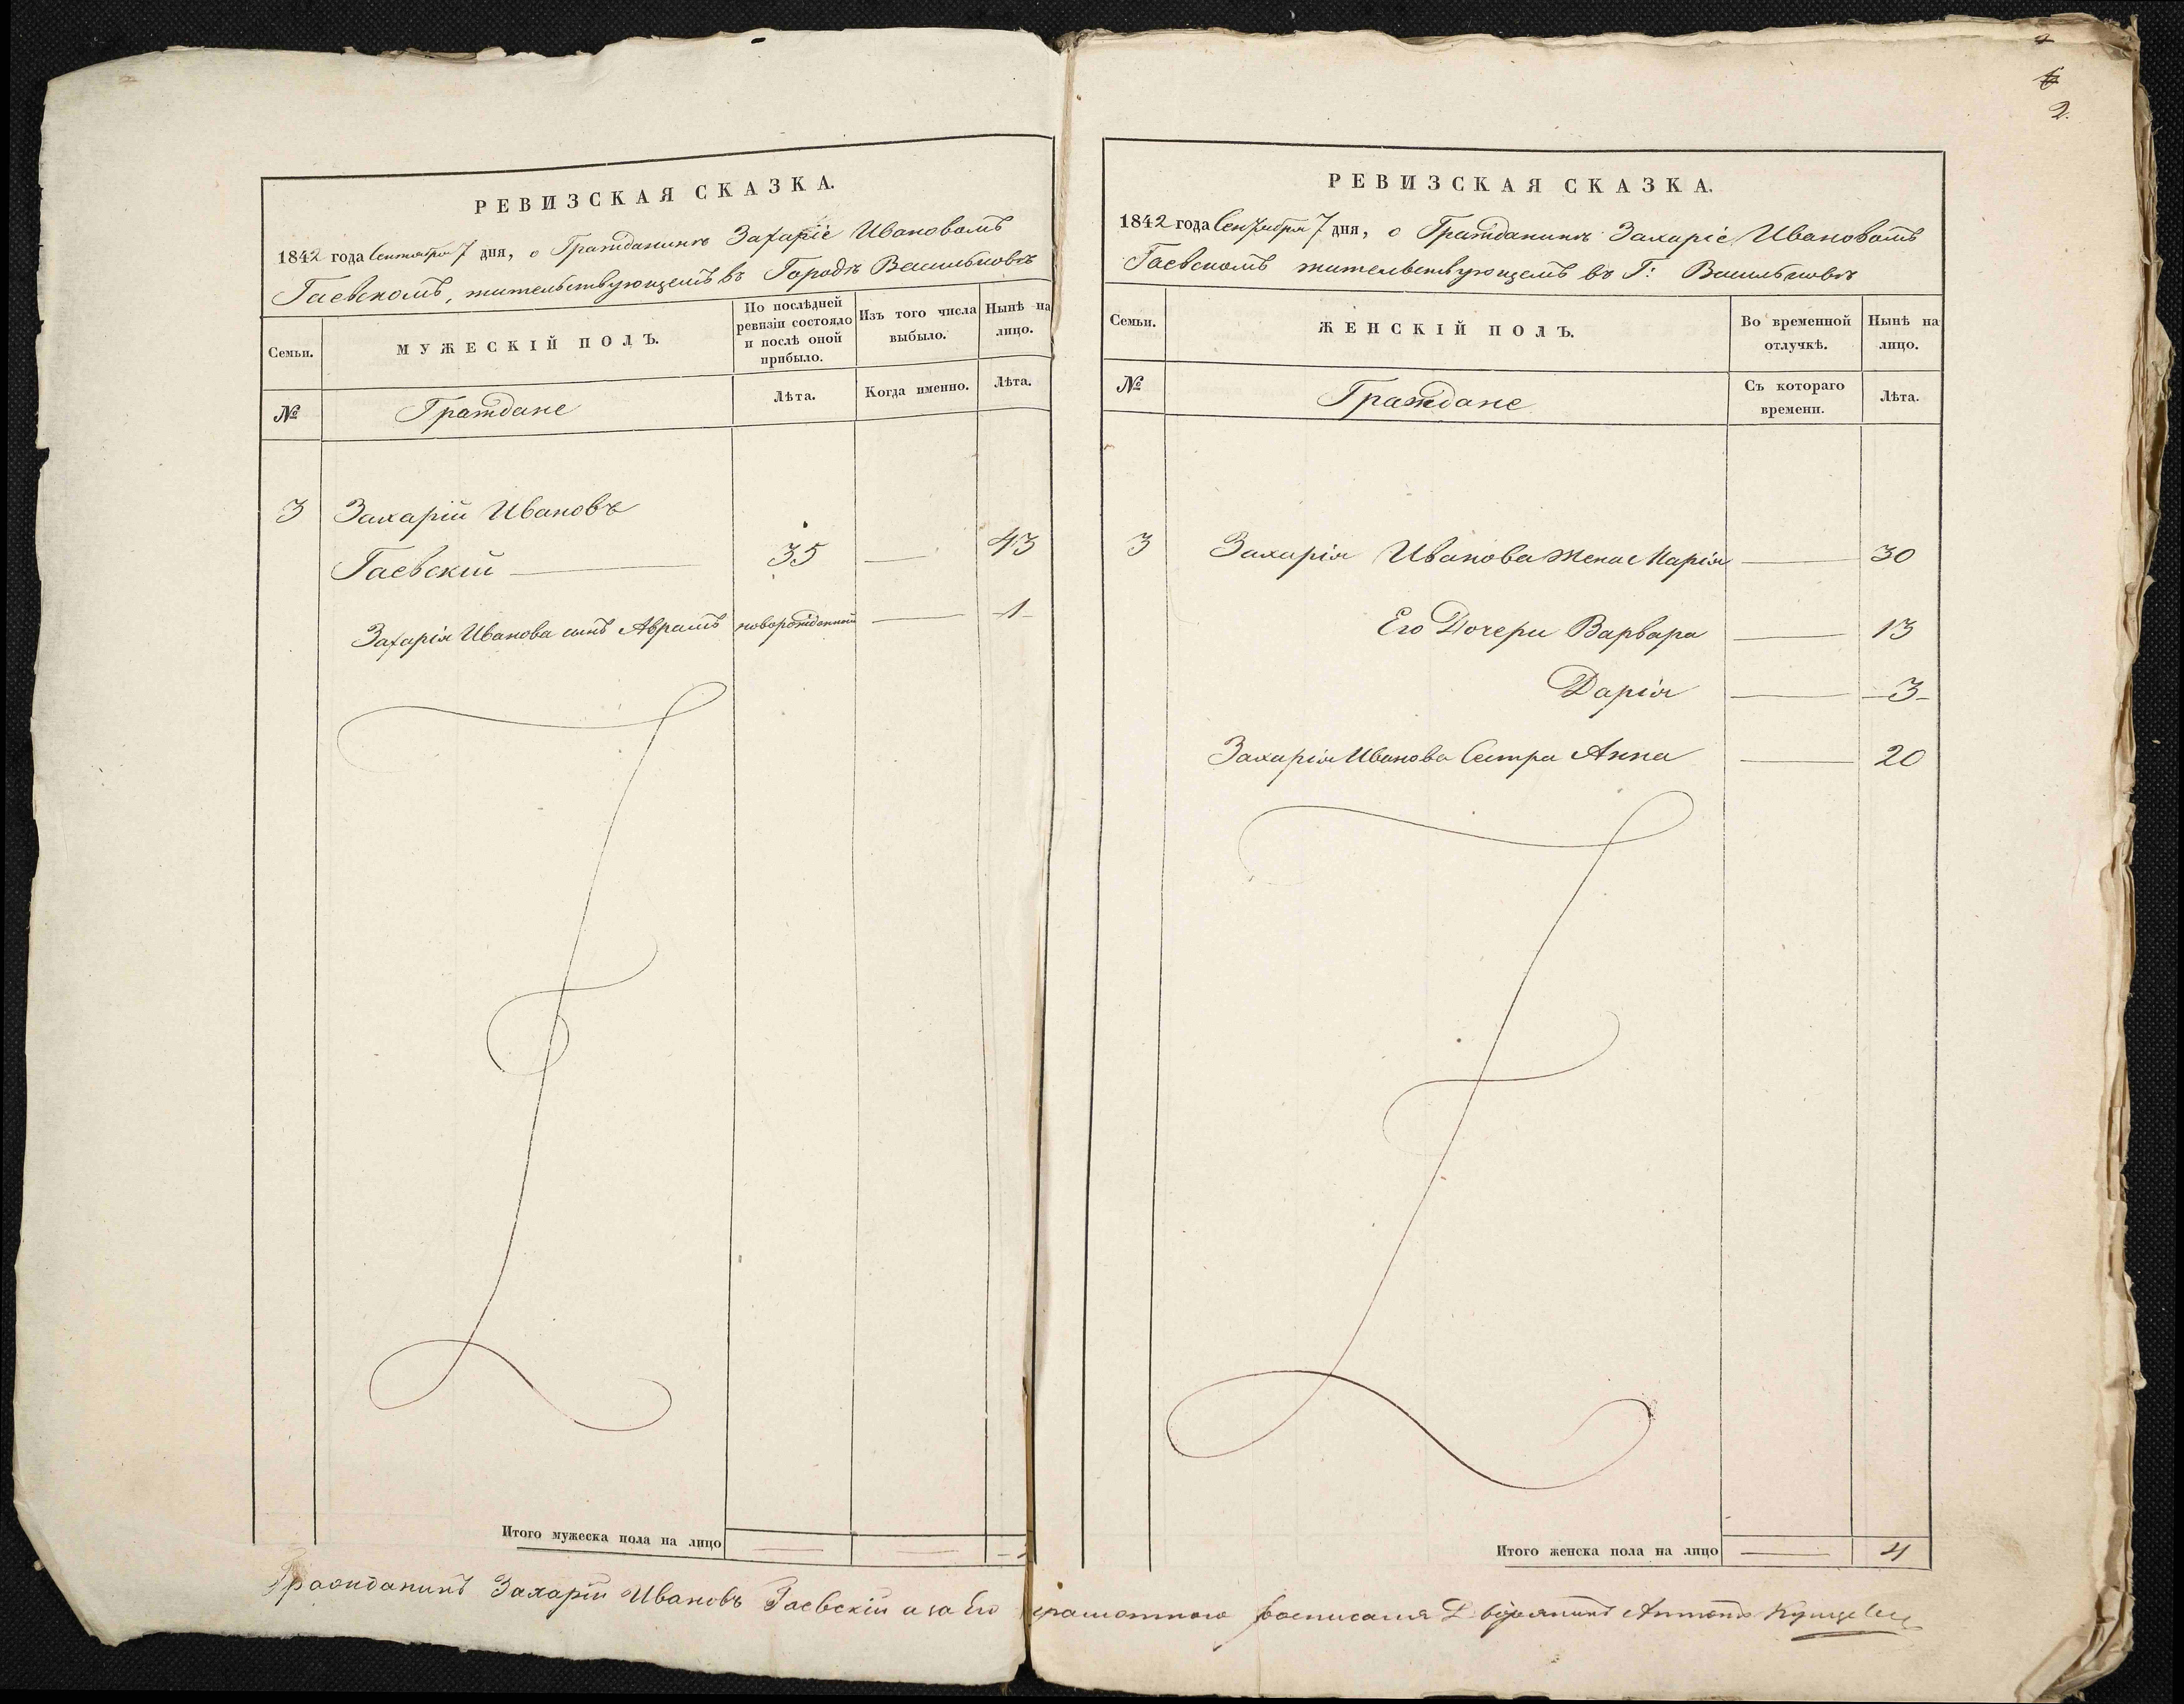 РЕВИЗСКАЯ СКАЗКА.
1842 года Сентября 7 дня, о Гражданинѣ Захаріе Ивановомъ
Гаевскомъ, жительствующемъ въ Городѣ Васильковѣ
Семьи.
МУЖЕСКІЙ ПОЛЪ.
По послѣдней ревизіи состояло и послѣ оной прибыло.
Изъ того числа выбыло.
Нынѣ на лицо.
№
Граждане
Лѣта.
Когда именно.
Лѣта.
3 Захарій Ивановъ
Гаевскій — 35 — 43
Захарія Иванова сынъ Абрамъ новорожденный — 1
Итого мужеска пола на лицо — —
Гражданинъ Захарій Ивановъ Гаевскій а за Его
2
2.
РЕВИЗСКАЯ СКАЗКА.
1842 года Сентября 7 дня, о Гражданинѣ Захаріе Ивановомъ
Гаевскомъ жительствующемъ въ Г: Васильковѣ
Семьи.
ЖЕНСКІЙ ПОЛЪ.
Во временной отлучкѣ.
Нынѣ на лицо.
№
Граждане
Съ котораго времени.
Лѣта.
3 Захарія Иванова жена Марія — 30
Его Дочери Варвара — 13
Дарія — 3
Захарія Иванова Сестра Анна — 20
Итого женска пола на лицо — 4
грамотного росписался Дворянинъ Антонъ